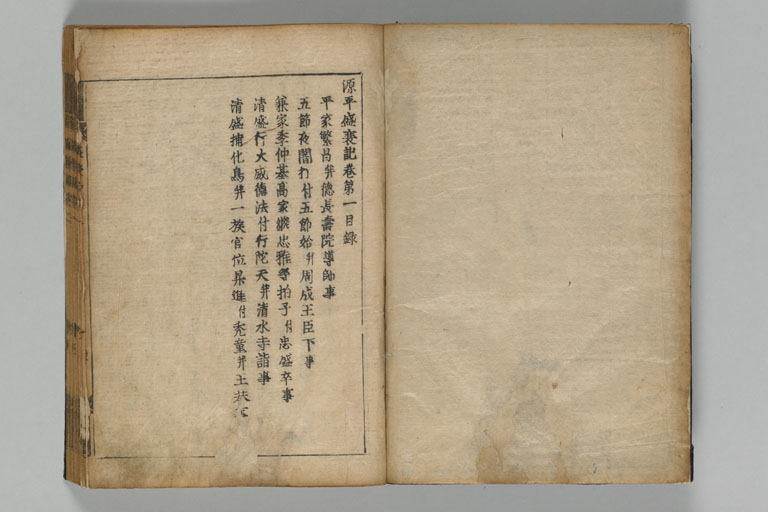 源平盛衰記巻第一目録
平家繁昌并徳長壽院導師事
五節夜闇打付五節始并周成王臣下事
兼家季仲基高家継忠雅等拍子付忠盛卒事
清盛行大威徳法付行陀天并清水寺詣事
清盛捕化鳥并一族官位昇進付禿童并王莽事